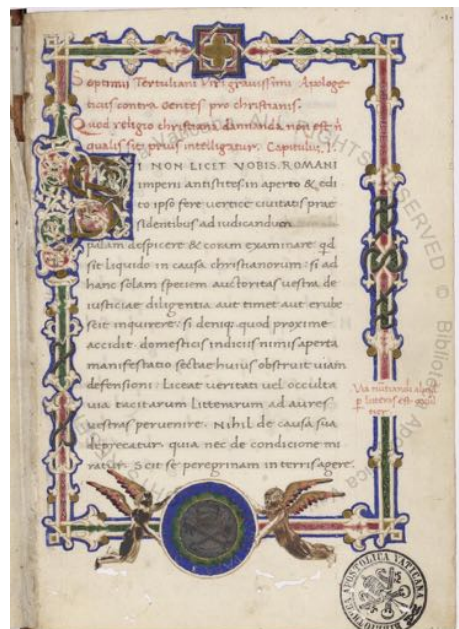 Septimii Tertuliani Viri gravissimi Apologe
ticus contra Gentes pro christianis.
Quod religio christiana damnanda non est nisi
qualis sit prius intelligatur. Capitulum .I.
SI NON LICET VOBIS. ROMANI
imperii antistites in aperto & edi
to ipso fere vertice civitatis prae
sidentibus ad iudicandum
palam despicere & coram examinare qd
sit liquido in causa christianorum: si ad
hanc solam speciem auctoritas vestra de
iusticiae diligentia aut timet aut erube
scit inquirere: si deniq. quod proxime
accidit domesticis indiciis nimis aperta
manifestatio sectae huius obstruit viam
defensioni: Liceat veritati vel occulta
via tacitarum litterarum ad aures
vestras pervenire. Nihil de causa sua
deprecatur. quia nec de condicione mi
ratur. Scit se peregrinam in terris agere.
BIBLIOTHECA APOSTOLICA VATICANA
ALL RIGHTS RESERVED © Biblioteca Apostolica Vaticana